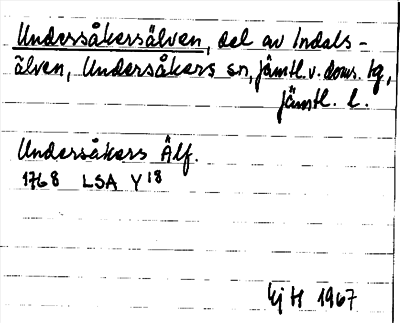 Undersåkersälven, del av Indals-
älven, Undersåkers sn, Jämtl. v. doms. tg,
Jämtl. l.
Undersåkers Älf.
1768 LSA Y18
Ej H 1967